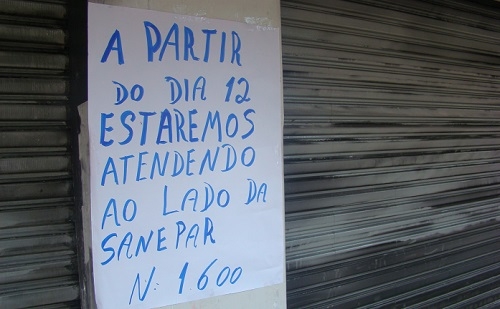 A PARTIR
DO DIA 12
ESTAREMOS
ATENDENDO
AO LADO DA
SANEPAR
N: 1600